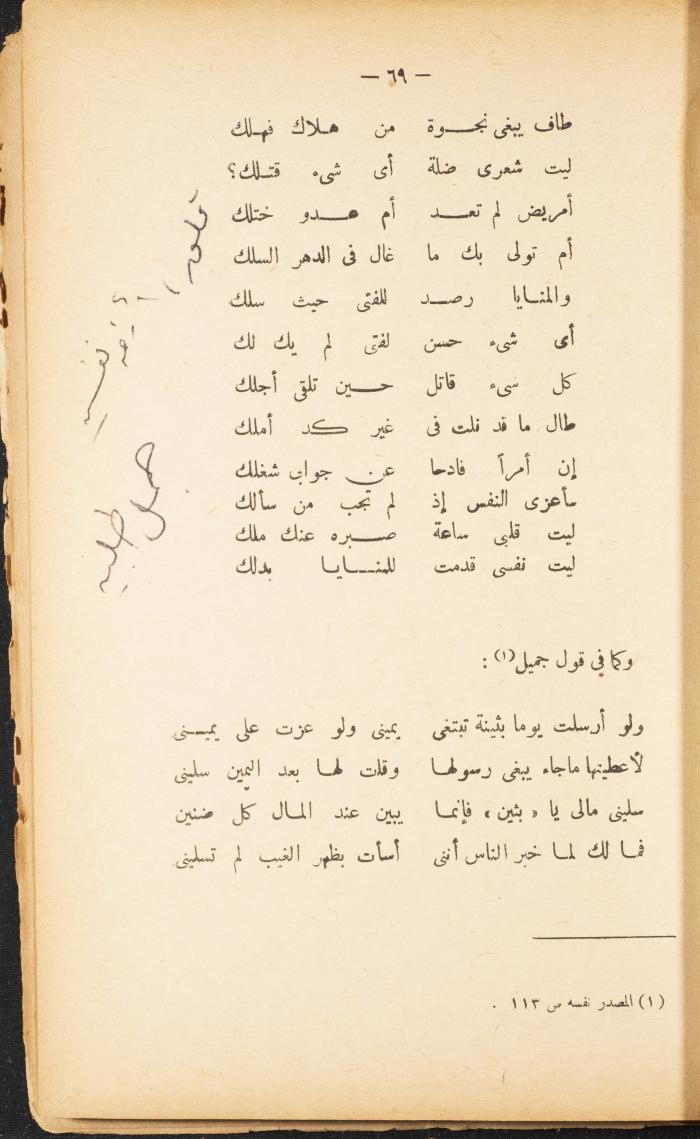 — ٦٩ —
طاف يبغى نجـــوة من هـلاك فهـلك
ليت شعرى ضلة أى شىء قتـلك؟
أمريض لم تعـــد أم عـــدو ختلك
أم تولى بك ما غال فى الدهر السلك
والمنـايا رصـد للفتى حيث سلك
أى شىء حسن لفتى لم يك لك
كل سىء قاتل حـــين تلقى أجلك
طال ما قد نلت فى غير كد أملك
إن أمراً فادحا عن جواب شغلك
سأعزى النفس إذ لم تجب من سألك
ليت قلبى ساعة صـــبره عنك ملك
ليت نفسى قدمت للمنـــايـا بدلك
وكما فى قول جميل(١) :
ولو أرسلت يوما بثينة تبتغى يمينى ولو عزت على يميـنى
لأعطيتها ماجاء يبغى رسولهـا وقلت لهـا بعد اليمين سلينى
سلينى مالى يا « بثين » فإنمـا يبين عند المـال كل ضنين
فمـا لك لمـا خبر الناس أننى أسأت بظهر الغيب لم تسلينى
(١) المصدر نفسه ص ١١٣ .